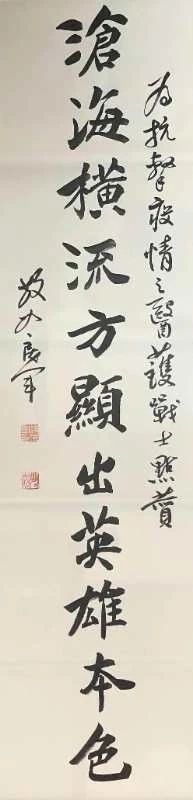 滄海橫流方顯出英雄本色
為抗擊疫情之醫護戰士點贊